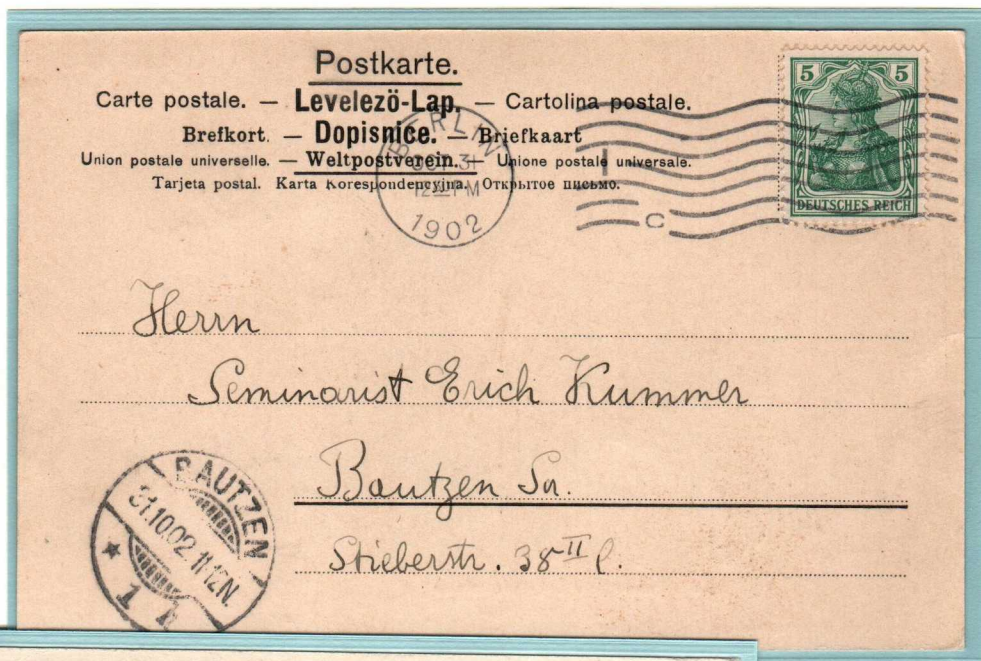 Postkarte.
Carte postale. — Levelezö-Lap. — Cartolina postale.
Brefkort. — Dopisnice. — Briefkaart
Union postale universelle. — Weltpostverein. — Unione postale universale.
Tarjeta postal. Karta Korespondencyjna. Открытое письмо.
BERLIN
OCT 31
12–1 PM
1902
C
5 5
DEUTSCHES REICH
Herrn
Seminarist Erich Kummer
Bautzen Sa.
Stieberstr. 38 II l.
BAUTZEN
31.10.02. 11-12N.
* 1